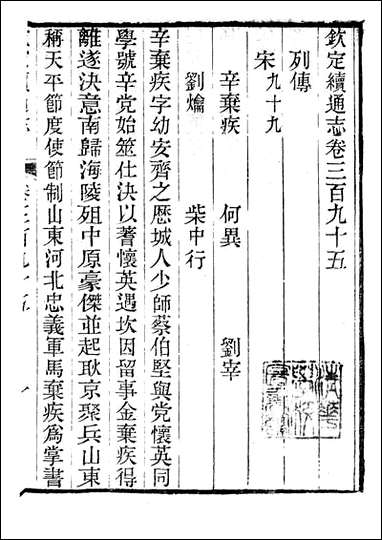 欽定續通志卷三百九十五
列傳
宋九十九
辛棄疾 何異 劉宰
劉爚 柴中行
辛棄疾字幼安齊之歷城人少師蔡伯堅與党懷英同
學號辛党始筮仕決以蓍懷英遇坎因留事金棄疾得
離遂決意南歸海陵殂中原豪傑並起耿京聚兵山東
稱天平節度使節制山東河北忠義軍馬棄疾爲掌書